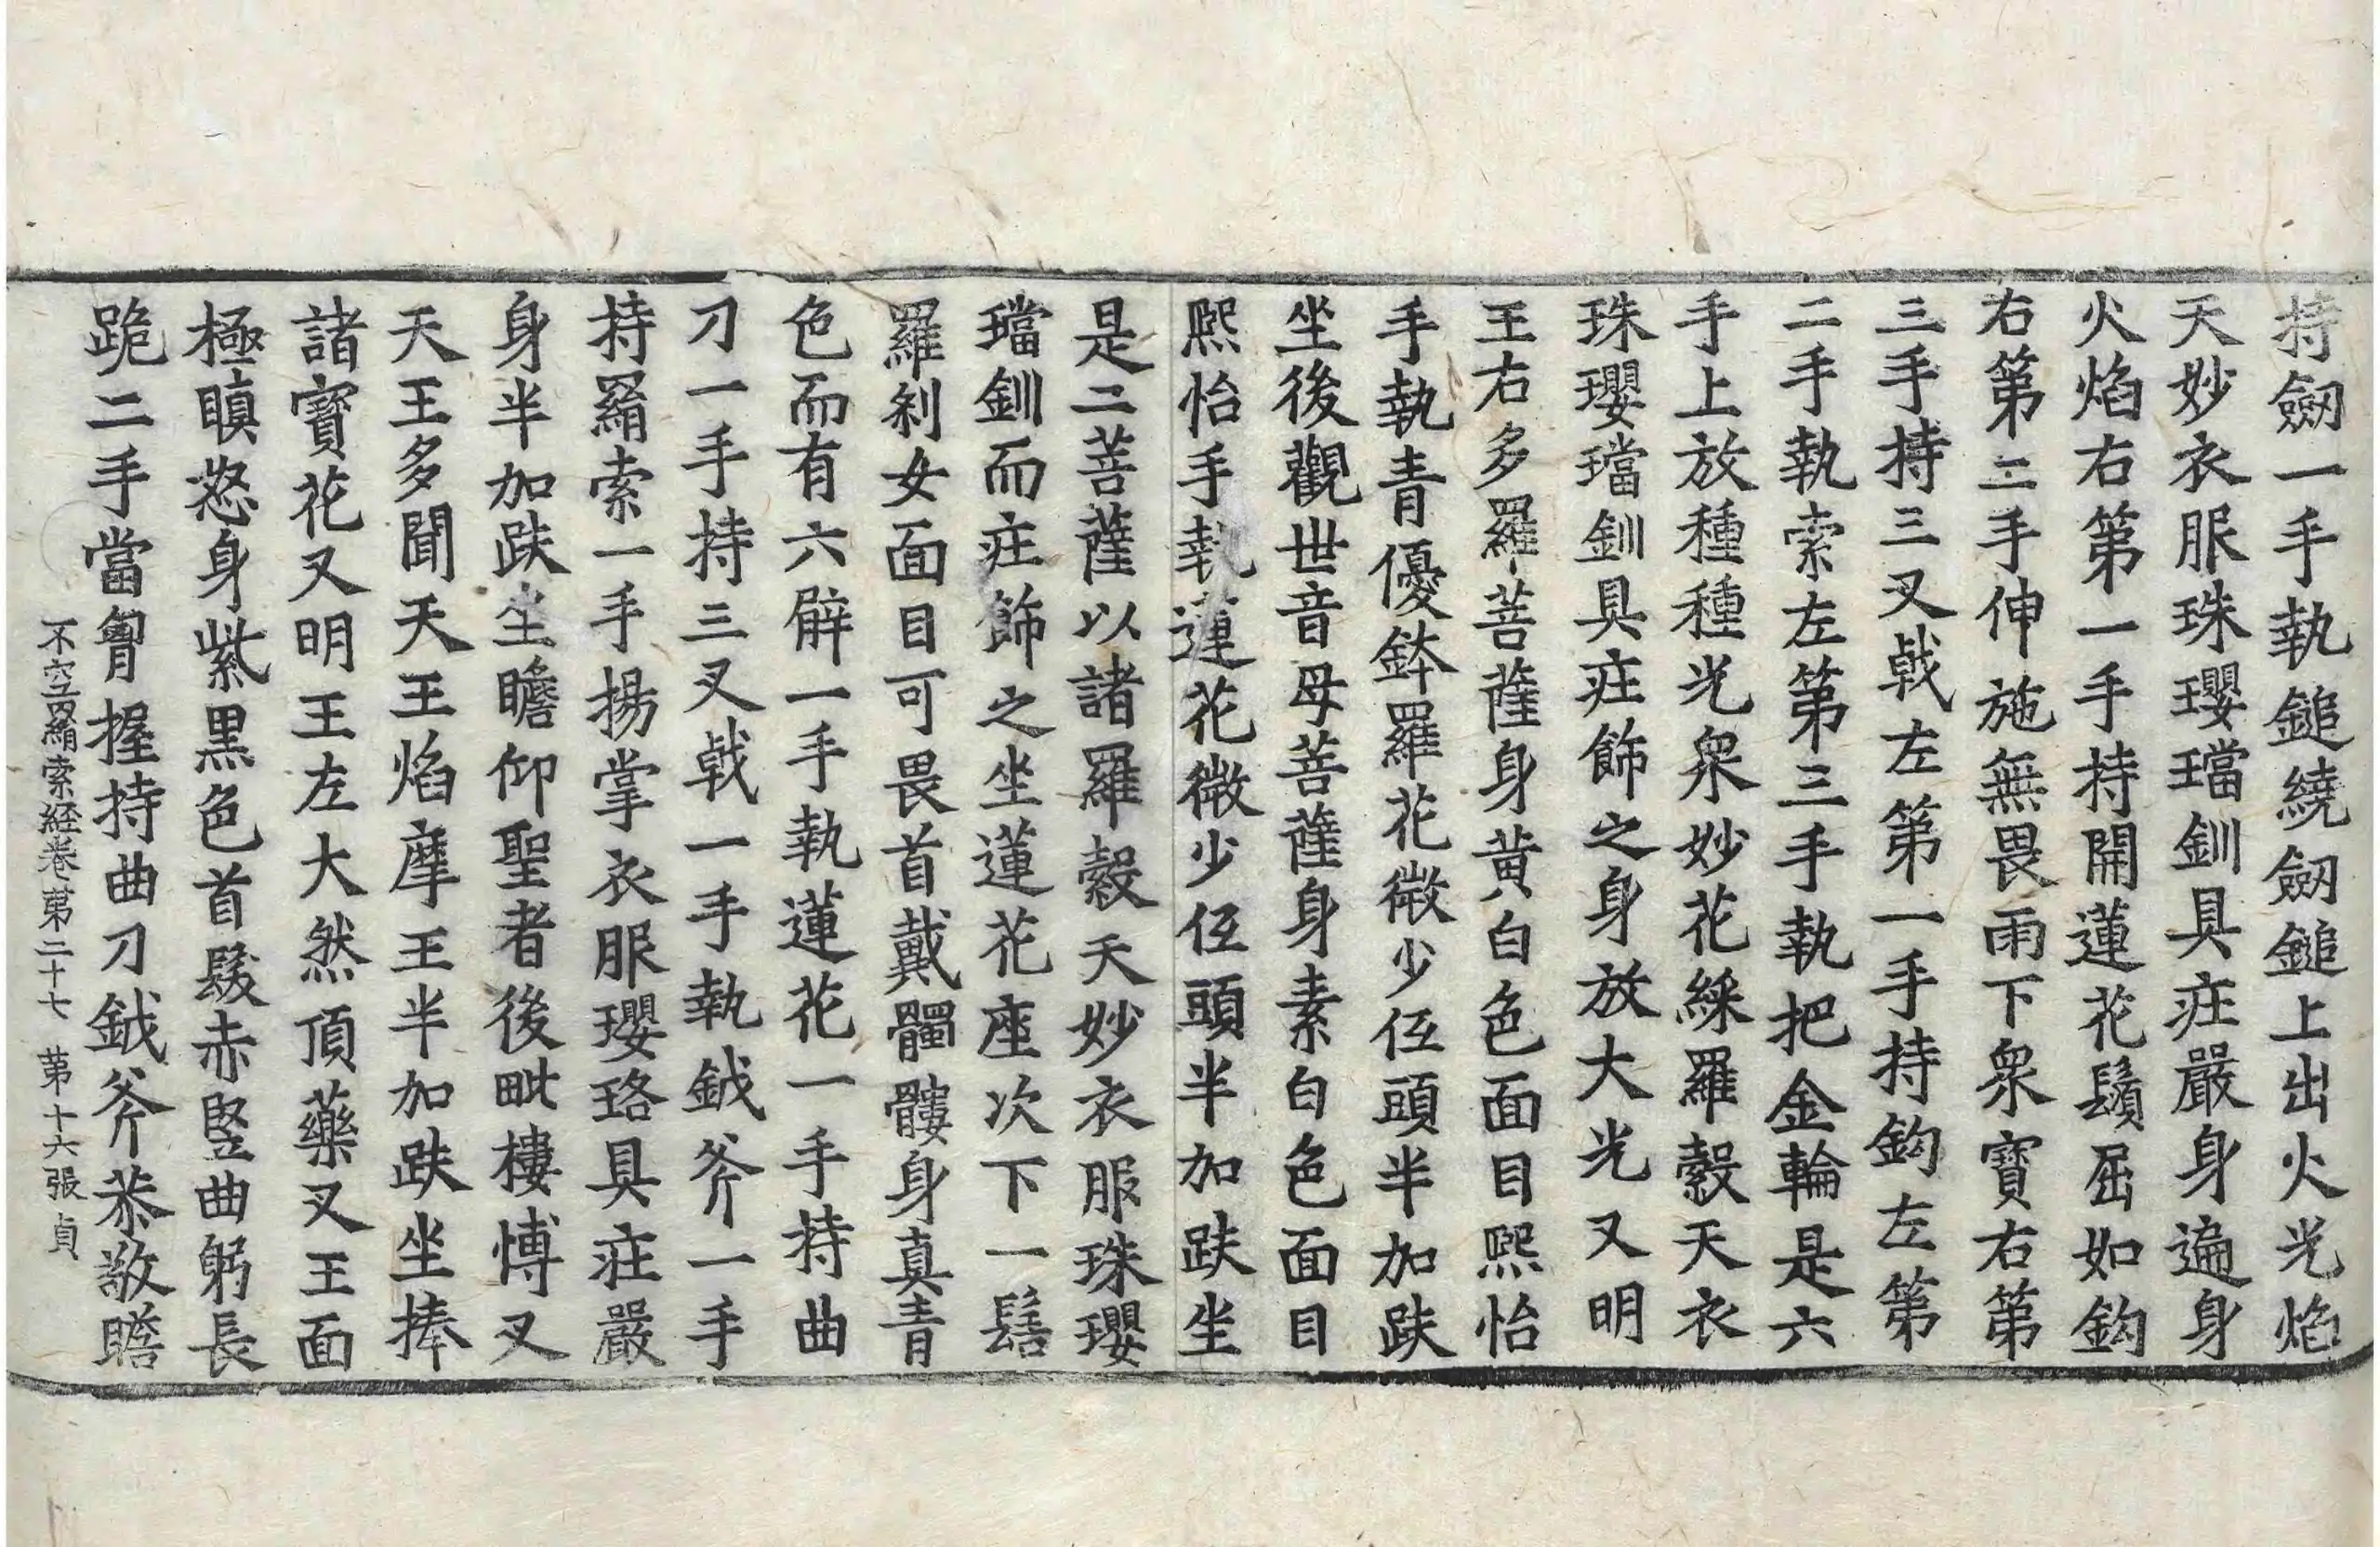 持劒一手執鎚繞劒鎚上出火光焰
天妙衣服珠瓔璫釧具庄嚴身遍身
火焰右第一手持開蓮花鬚屈如鈎
右第二手伸施無畏雨下衆寶右第
三手持三叉戟左第一手持鈎左第
二手執索左第三手執把金輪是六
手上放種種光衆妙花綵羅縠天衣
珠瓔璫釧具庄飾之身放大光又明
王右多羅菩薩身黃白色面目熙怡
手執青優鉢羅花微少伍頭半加趺
坐後觀世音母菩薩身素白色面目
熙怡手執蓮花微少伍頭半加趺坐
是二菩薩以諸羅縠天妙衣服珠瓔
璫釧而庄飾之坐蓮花座次下一髻
羅刹女面目可畏首戴髑髏身真青
色而有六臂一手執蓮花一手持曲
刀一手持三叉戟一手執鉞斧一手
持羂索一手揚掌衣服瓔珞具莊嚴
身半加趺坐瞻仰聖者後毗樓愽叉
天王多聞天王焰摩王半加趺坐捧
諸寶花又明王左大然頂藥叉王面
極瞋怒身紫黑色首髮赤竪曲躬長
跪二手當胷握持曲刀鉞斧恭敬瞻
不空羂索経卷第二十七 第十六張 貞